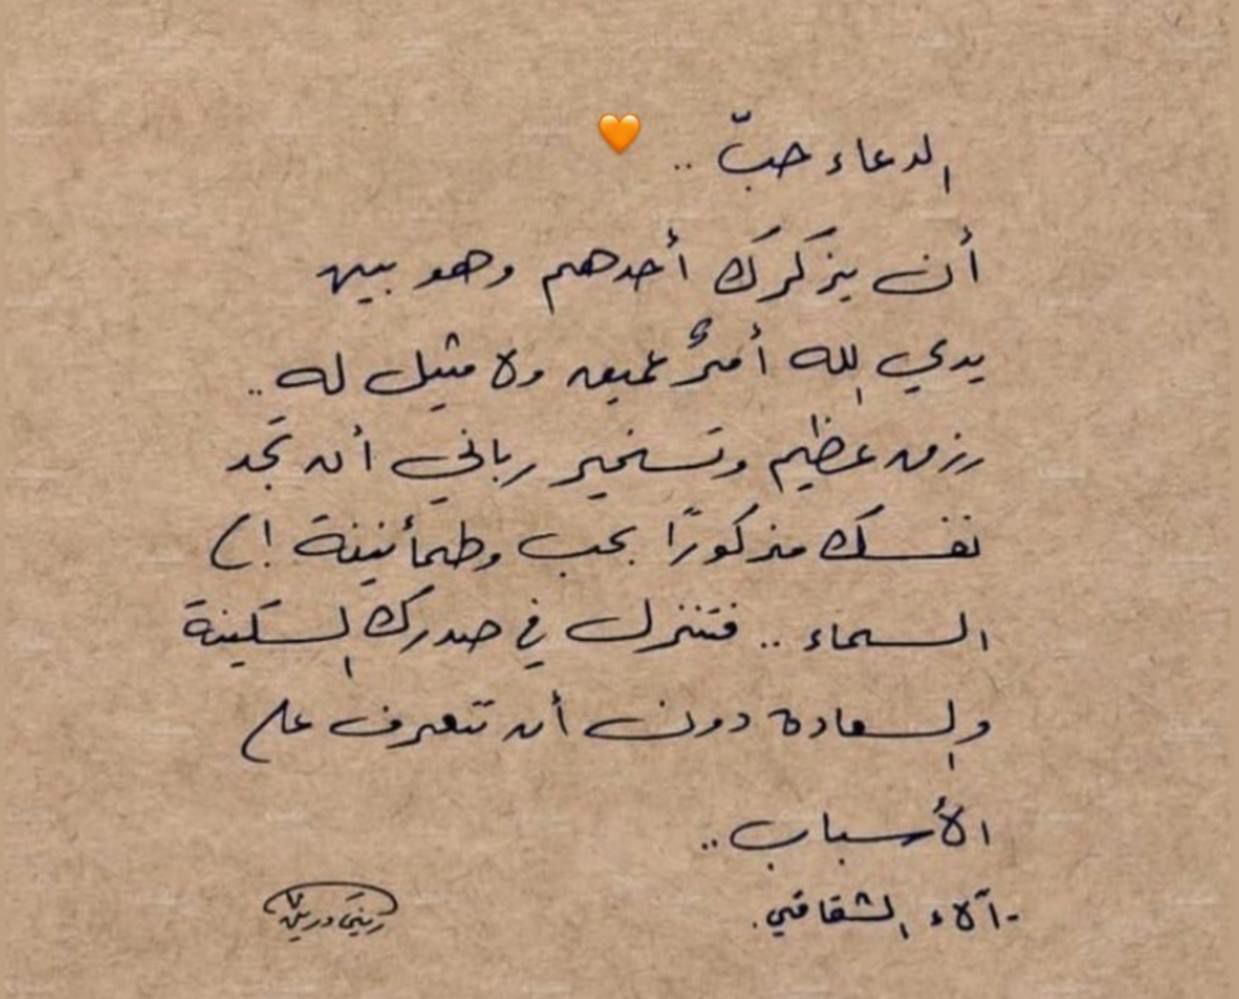 الدعاء حبّ .. 🧡
أن يذكرَكَ أحدهم وهو بين
يدي الله أمرٌ عميق ولا مثيل له ..
رزق عظيم وتسخير رباني أن تجد
نفسك مذكورًا بحب وطمأنينة إلى
السماء .. فتنزل في صدرك السكينة
والسعادة دون أن تتعرف على
الأسباب ..
- آلاء الشقاقي.